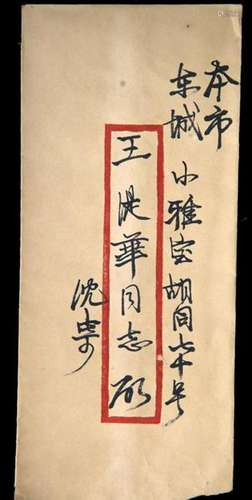 本市
东城 小雅宝胡同七十号
王是華同志 啟
沈寄